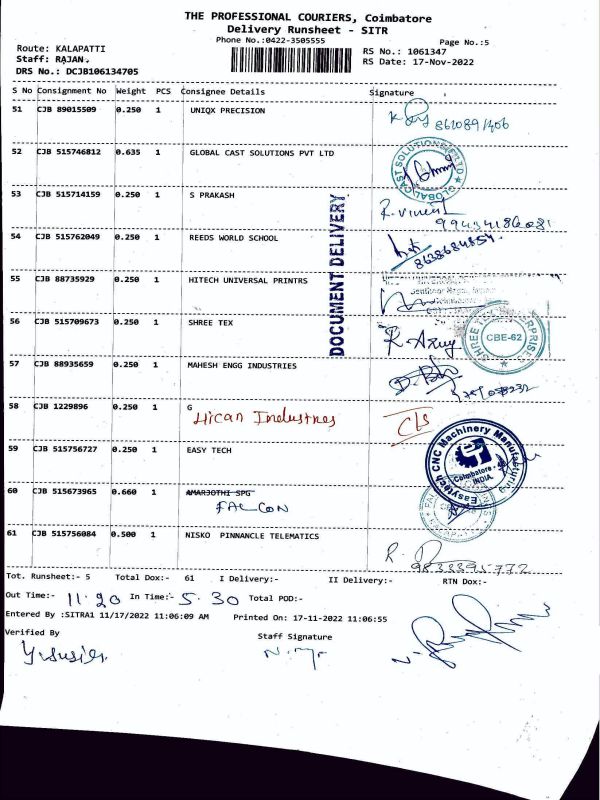 THE PROFESSIONAL COURIERS, Coimbatore
Delivery Runsheet - SITR
Phone No.:0422-3505555
Page No.:5
Route: KALAPATTI
RS No.: 1061347
Staff: RAJAN.
RS Date: 17-Nov-2022
DRS No.: DCJB106134705
S No Consignment No Weight PCS Consignee Details Signature
51 CJB 89015509 0.250 1 UNIQX PRECISION
52 CJB 515746812 0.635 1 GLOBAL CAST SOLUTIONS PVT LTD
53 CJB 515714159 0.250 1 S PRAKASH
54 CJB 515762049 0.250 1 REEDS WORLD SCHOOL
8638684854
DOCUMENT DELIVERY
55 CJB 88735929 0.250 1 HITECH UNIVERSAL PRINTRS
56 CJB 515709673 0.250 1 SHREE TEX
CBE-62
57 CJB 88935659 0.250 1 MAHESH ENGG INDUSTRIES
58 CJB 1229896 0.250 1 G
Hican Industries
59 CJB 515756727 0.250 1 EASY TECH
Easytech CNC Machinery Manufacturing
Coimbatore
INDIA.
60 CJB 515673965 0.660 1 AMARJOTHI SPG
FALCON
61 CJB 515756084 0.500 1 NISKO PINNANCLE TELEMATICS
9833395772
Tot. Runsheet:- 5 Total Dox:- 61 I Delivery:- II Delivery:- RTN Dox:-
Out Time:- 11.20 In Time:- 5.30 Total POD:-
Entered By :SITRA1 11/17/2022 11:06:09 AM Printed On: 17-11-2022 11:06:55
Verified By
Staff Signature